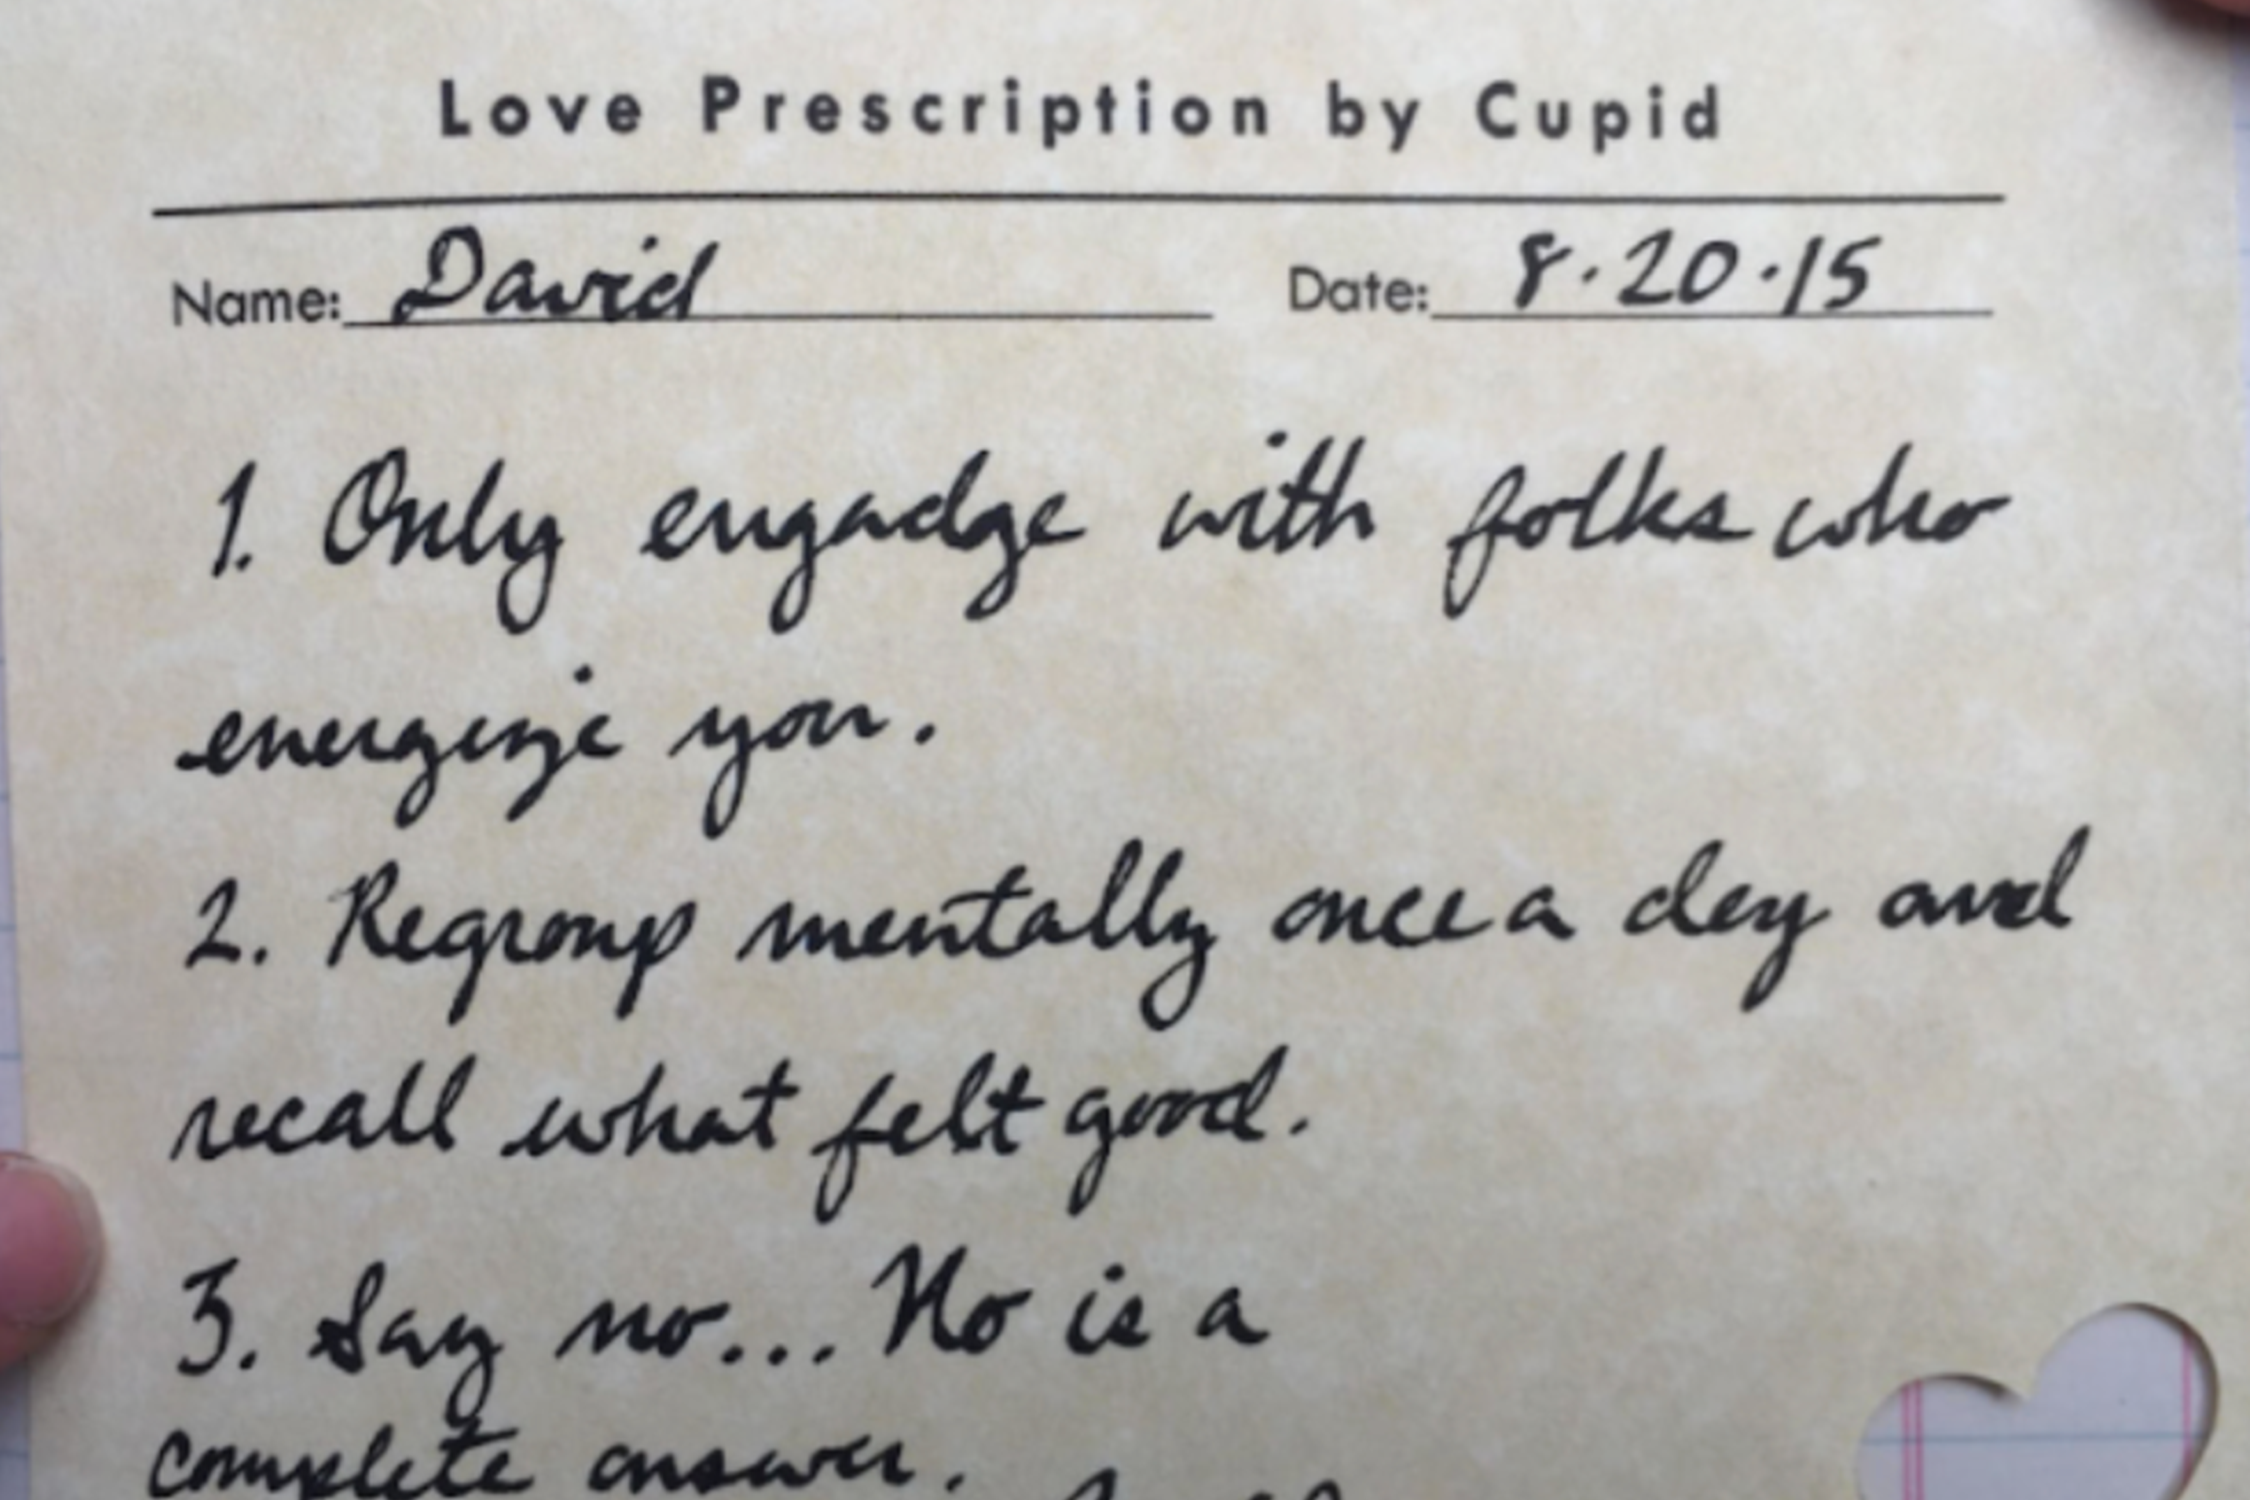 Love Prescription by Cupid
Name: David Date: 8.20.15
1. Only engadge with folks who
energize you.
2. Regroup mentally once a day and
recall what felt good.
3. Say no... No is a
complete answer.